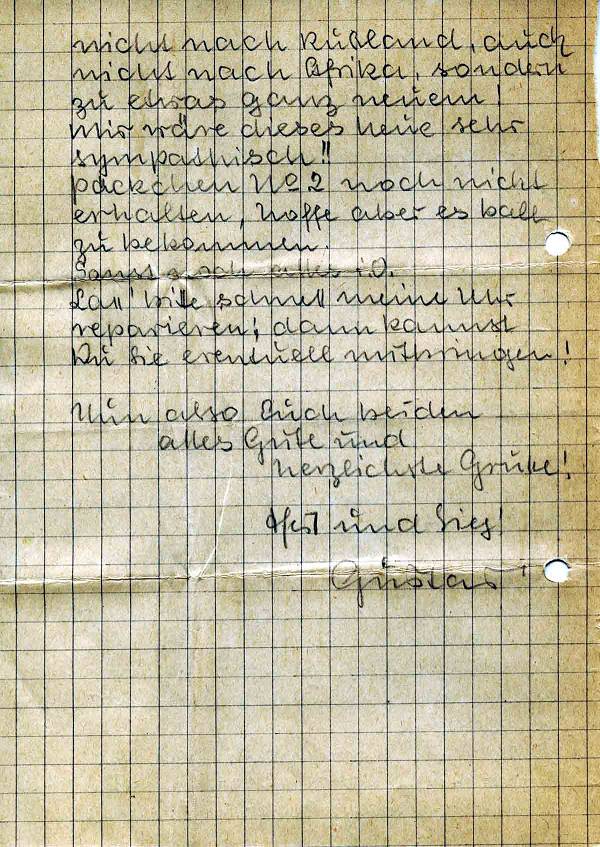 nicht nach Rußland, auch
nicht nach Afrika, sondern
zu etwas ganz neuem!
Mir wäre dieses Neue sehr
sympathisch!!
Päckchen No 2 noch nicht
erhalten, hoffe aber es bald
zu bekommen.
Sonst noch alles i.O.
Laß' bitte schnell meine Uhr
reparieren; dann kannst
Du sie eventuell mitbringen!
Nun also Euch beiden
alles Gute und
herzlichste Grüße!
Heil und Sieg!
Gustav